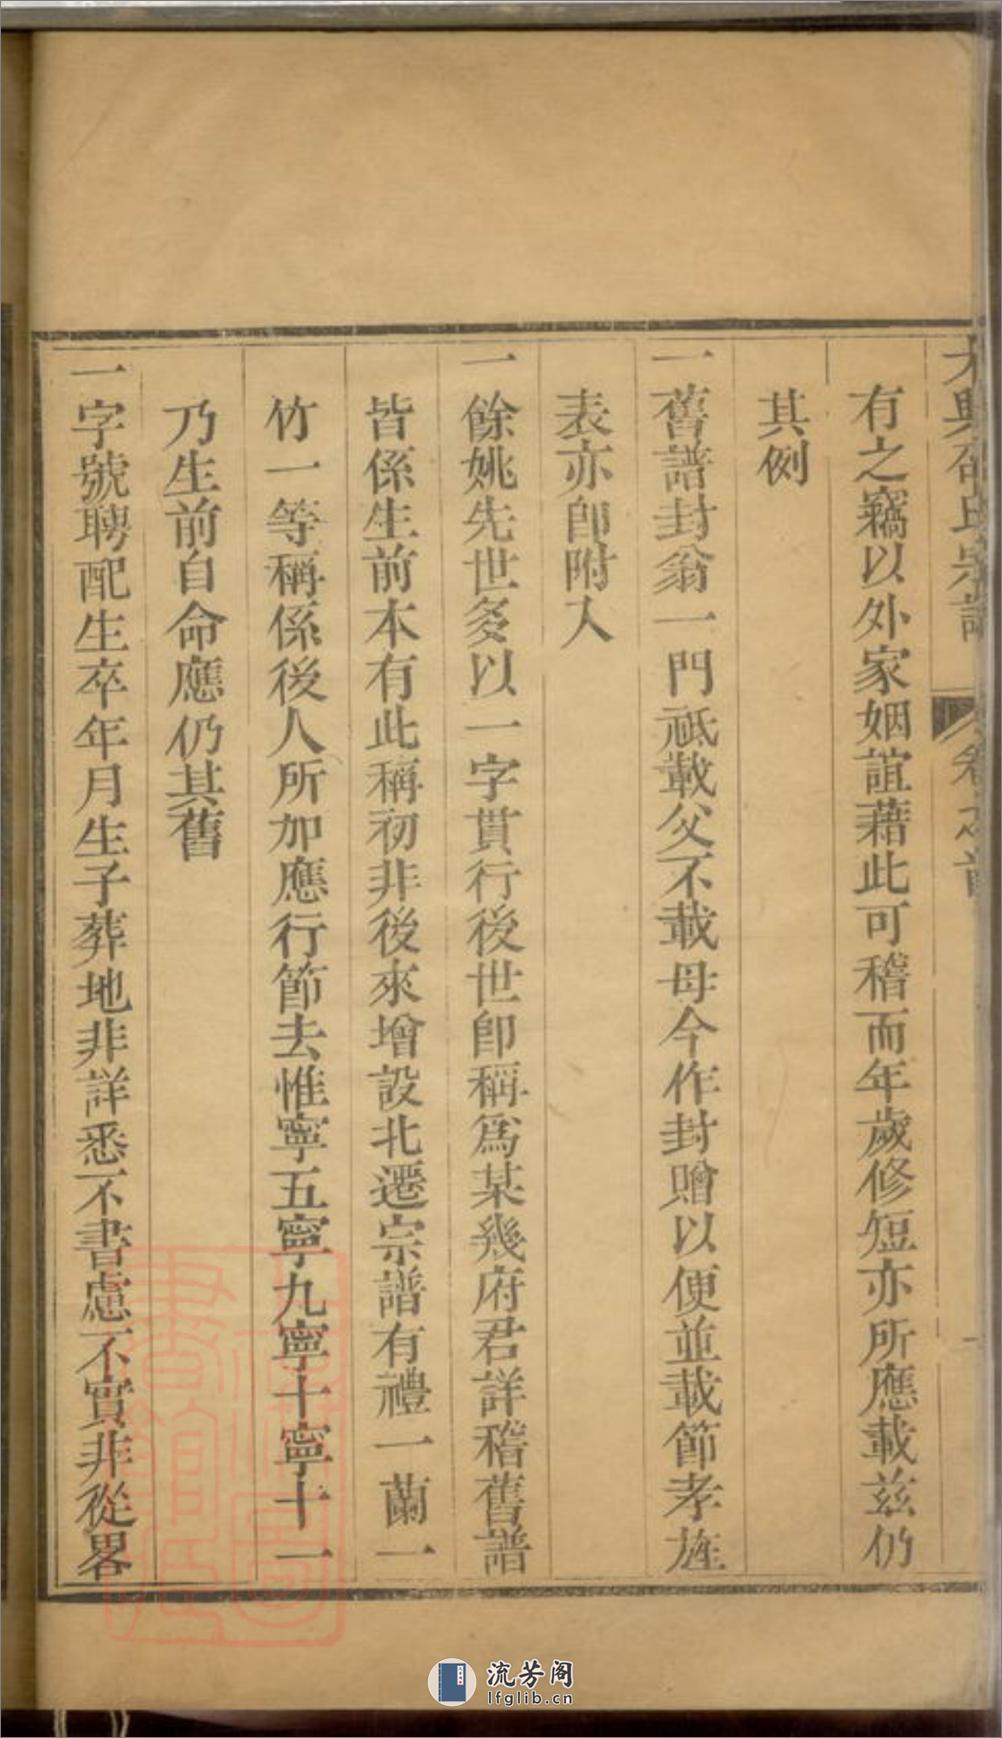 大興邵氏宗譜 卷之首
有之竊以外家姻誼藉此可稽而年歲修短亦所應載茲仍
其例
一舊譜封翁一門祗載父不載母今作封贈以便並載節孝旌
表亦卽附入
一餘姚先世多以一字貫行後世卽稱爲某幾府君詳稽舊譜
皆係生前本有此稱初非後來增設北遷宗譜有禮一蘭一
竹一等稱係後人所加應行節去惟寧五寧九寧十寧十一
乃生前自命應仍其舊
一字號聘配生卒年月生子葬地非詳悉不書慮不實非從畧
流芳阁
lfglib.cn